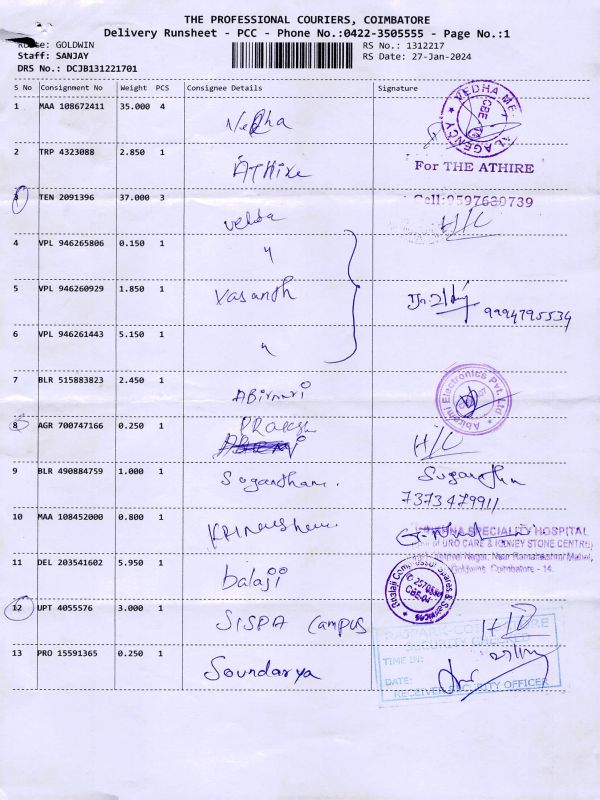 THE PROFESSIONAL COURIERS, COIMBATORE
Delivery Runsheet - PCC - Phone No.:0422-3505555 - Page No.:1
Route: GOLDWIN
RS No.: 1312217
Staff: SANJAY
RS Date: 27-Jan-2024
DRS No.: DCJB131221701
S No Consignment No Weight PCS Consignee Details Signature
1 MAA 108672411 35.000 4 Nedha
VEDHA AGENCY CBE
2 TRP 4323088 2.850 1 AThire
For THE ATHIRE
Cell:9597630739
3 TEN 2091396 37.000 3 vedha H/C
4 VPL 946265806 0.150 1 "
5 VPL 946260929 1.850 1 Vasanth 9994795534
6 VPL 946261443 5.150 1 "
7 BLR 515883823 2.450 1 ABirami
Abirami Electronics Pvt. Ltd
8 AGR 700747166 0.250 1 PRakash H/C
9 BLR 490884759 1.000 1 Sugantham. Sugantha
7373479911
10 MAA 108452000 0.800 1
SPECIALITY HOSPITAL
URO CARE & KIDNEY STONE CENTRE)
Nagar, Near Ramakrishna Mahal,
Goldwins, Coimbatore - 14.
11 DEL 203541602 5.950 1 balaji
Balaji Compressor Spares & Services
CBE-04
12 UPT 4055576 3.000 1 SISPA Campus H/D
13 PRO 15591365 0.250 1 Soundarya
SECURITY CHECKED
TIME IN:
DATE:
RECEIVER SECURITY OFFICER